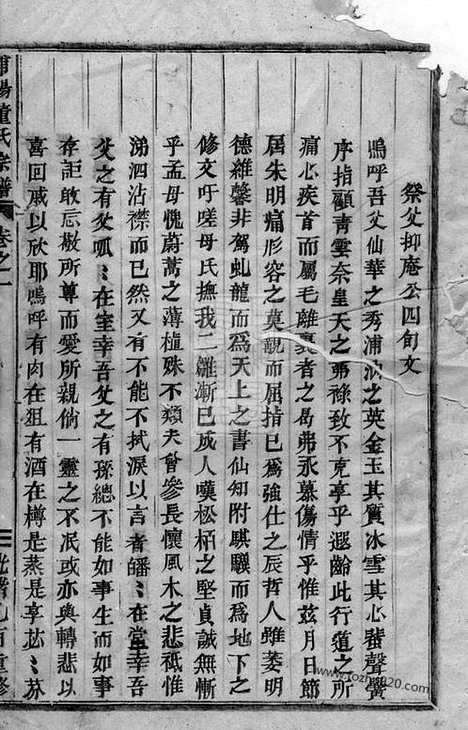 祭父抑庵公四旬文
嗚呼吾父仙華之秀浦汭之英金玉其質冰雪其心蜚聲黌
序指顧青雲奈皇天之弗祿致不克享乎遐齡此行道之所
痛心疾首而屬毛離裏者之曷弗永慕傷情乎惟茲月日節
屆朱明痛形容之莫覩而屈指已為強仕之辰哲人雖萎明
德維馨非駕虬龍而為天上之書仙知附騏驥而為地下之
修文吁嗟母氏撫我二雛漸已成人嘆松栢之堅貞誠無慚
乎孟母愧蔚蒿之薄植殊不類夫曾參長懷風木之悲祗惟
涕泗沾襟而已然又有不能不拭淚以言者皤〻在堂幸吾
父之有父呱〻在室幸吾父之有孫總不能如事生而如事
存詎敢忘敬所尊而愛所親倘一靈之不泯或亦與轉悲以
喜回戚以欣耶嗚呼有肉在俎有酒在樽是蒸是享苾〻芬
浦陽董氏宗譜
卷之一
www.fozhu920.com